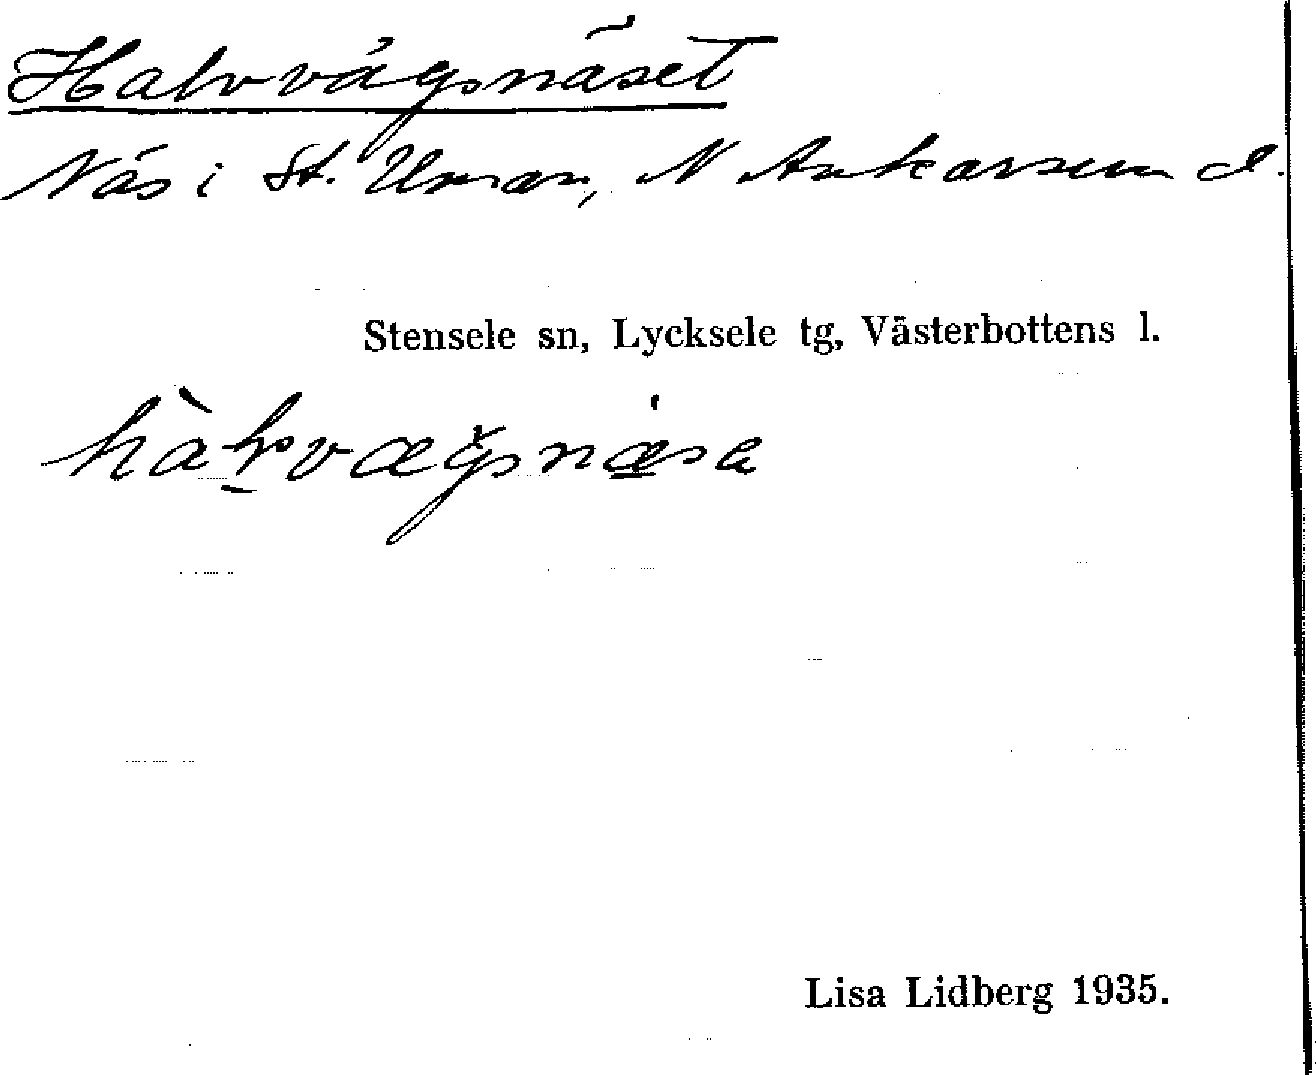 Halvvägsnäset
Näs i St. Uman, N Ankarsund.
Stensele sn, Lycksele tg, Västerbottens l.
Lisa Lidberg 1935.